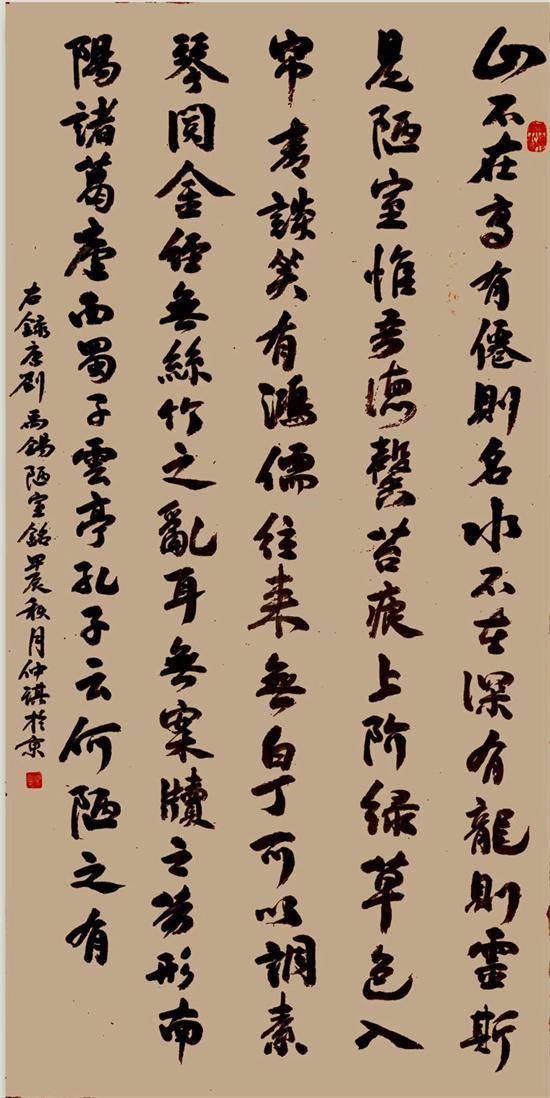 山不在高有僊則名水不在深有龍則靈斯
是陋室惟吾德馨苔痕上阶绿草色入
帘青談笑有鴻儒往来無白丁可以調素
琴閱金經無絲竹之亂耳無案牘之劳形南
陽諸葛廬西蜀子雲亭孔子云何陋之有
右録唐劉禹錫陋室銘甲辰秋月仲於京